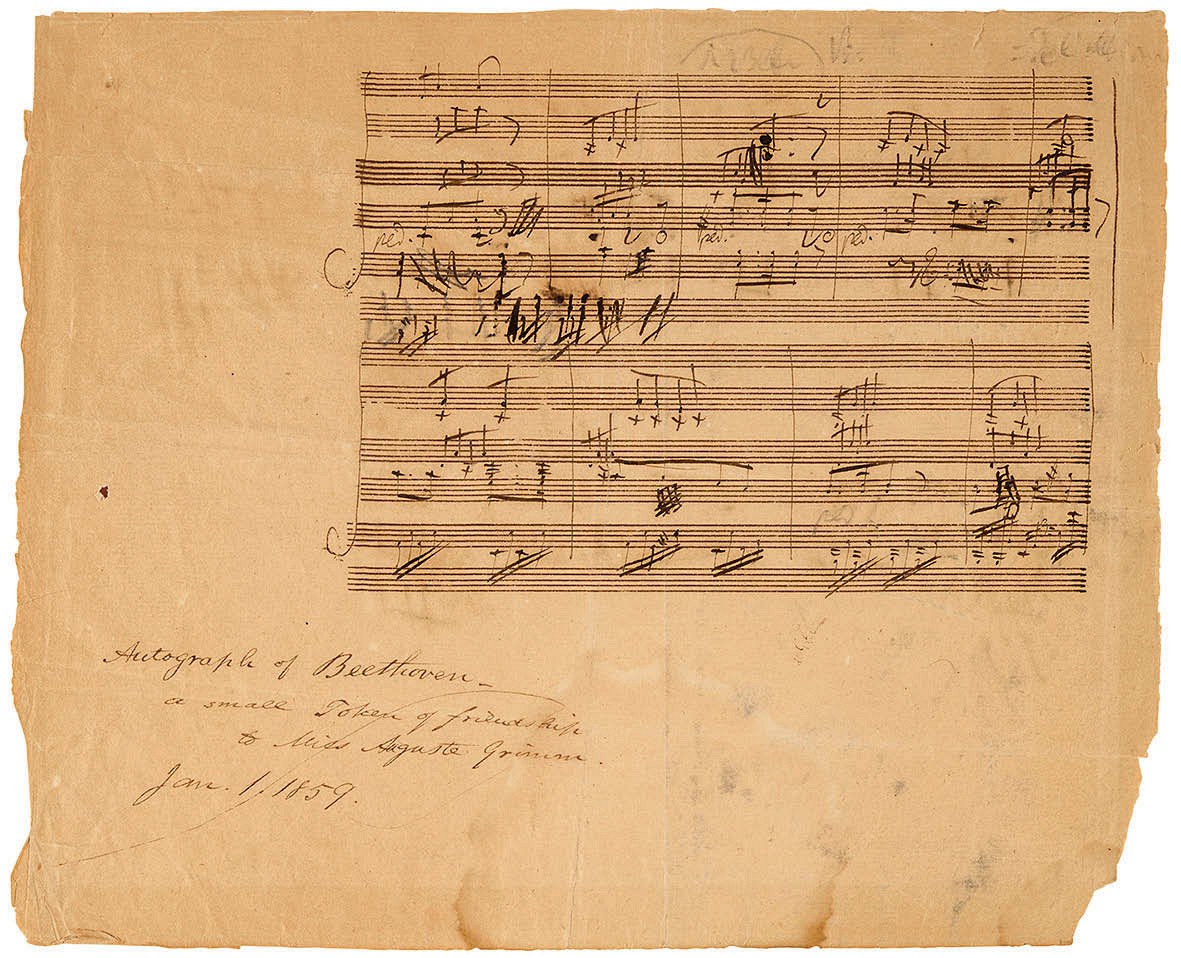 ped.
ped.
ped.
Autograph of Beethoven –
a small Token of friendship
to Miss Auguste Grimm.
Jan. 1, 1859.